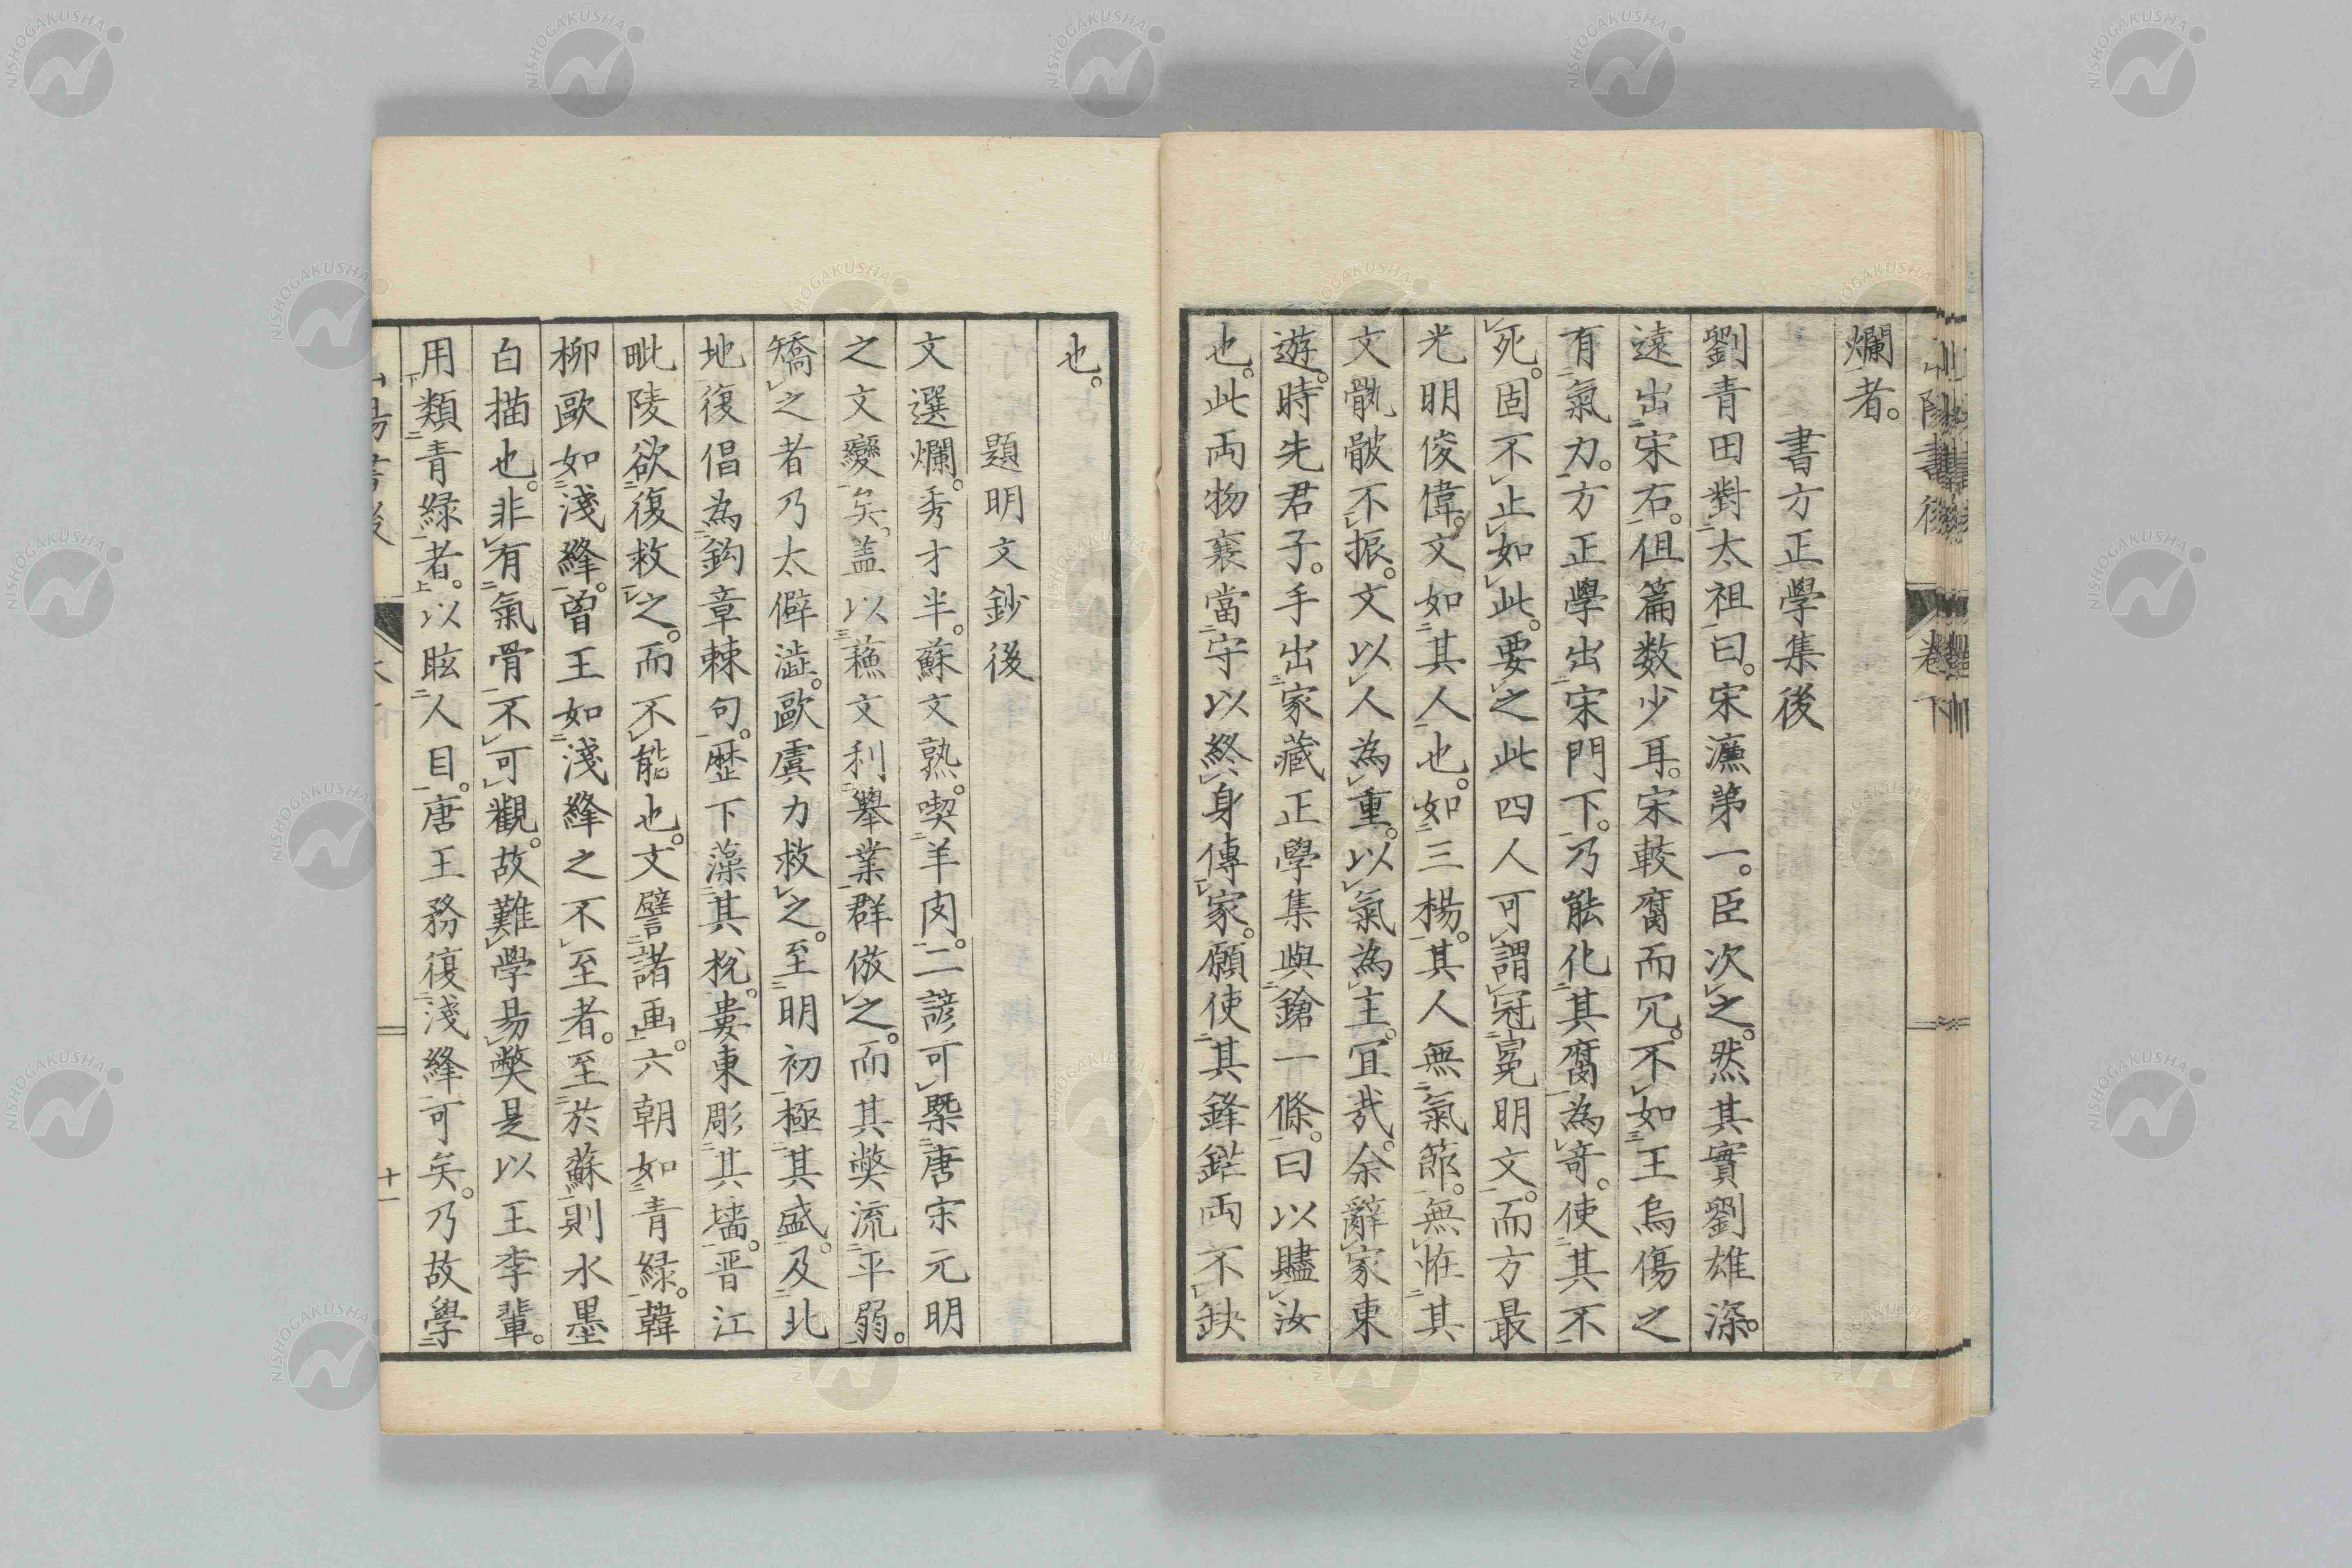 山陽書後 卷下
爛者。
書方正學集後
劉青田對太祖曰。宋濂第一。臣次之。然其實劉雄深。
遠出宋右。但篇数少耳。宋較腐而冗。不如王烏傷之
有氣力。方正學出宋門下。乃能化其腐為竒。使其不
死。固不止如此。要之此四人可謂冠冕明文。而方最
光明俊偉。文如其人也。如三楊。其人無氣節。無恠其
文骫骳不振。文以人為重。以氣為主。冝哉。余辭家東
遊。時先君子。手出家藏正學集與鎗一條。曰以贐汝
也。此両物襄當守以終身傳家。願使其鋒鋩両不缺
也。
題明文鈔後
文選爛。秀才半。蘇文熟。喫羊肉。二諺可槩唐宋元明
之文變矣。盖以蘓文利舉業群倣之。而其弊流平弱。
矯之者乃太僻澁。歐虞力救之。至明初極其盛。及北
地復倡為鈎章棘句。歴下藻其梲。婁東彫其墻。晋江
毗陵欲復救之。而不能也。文譬諸画。六朝如青緑。韓
柳歐如淺絳。曽王如淺絳之不至者。至於蘇則水墨
白描也。非有氣骨不可觀。故難學易弊是以王李輩。
用類青緑者。以眩人目。唐王務復淺絳可矣。乃故學
十一
NISHOGAKUSHA